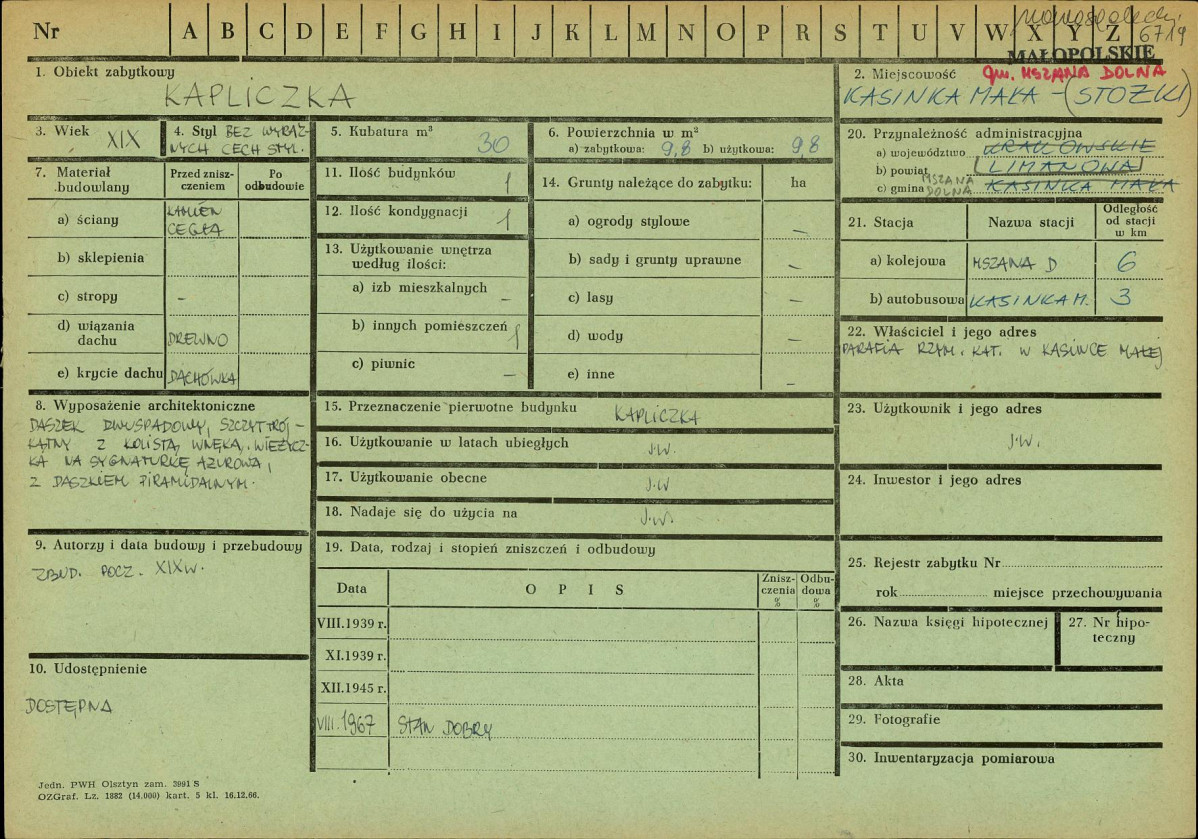 Nr A B C D E F G H I J K L M N O P R S T U V W X Y Z
6719
MAŁOPOLSKIE
1. Obiekt zabytkowy
KAPLICZKA
2. Miejscowość gm. MSZANA DOLNA
KASINKA MAŁA - (STOŻKI)
3. Wiek XIX
4. Styl BEZ WYRAŹ-
NYCH CECH STYL.
5. Kubatura m³
30
6. Powierzchnia w m²
a) zabytkowa: 9,8 b) użytkowa: 9,8
7. Materiał budowlany
Przed znisz-
czeniem
Po
odbudowie
a) ściany KAMIEŃ
CEGŁA
b) sklepienia
c) stropy -
d) wiązania
dachu DREWNO
e) krycie dachu DACHÓWKA
8. Wyposażenie architektoniczne
DASZEK DWUSPADOWY, SZCZYT TRÓJ-
KĄTNY Z KOLISTĄ WNĘKĄ. WIEŻYCZ-
KA NA SYGNATURKĘ AŻUROWA,
Z DASZKIEM PIRAMIDALNYM.
9. Autorzy i data budowy i przebudowy
ZBUD. POCZ. XIX W.
10. Udostępnienie
DOSTĘPNA
11. Ilość budynków 1
12. Ilość kondygnacji 1
13. Użytkowanie wnętrza
według ilości:
a) izb mieszkalnych -
b) innych pomieszczeń 1
c) piwnic -
14. Grunty należące do zabytku: ha
a) ogrody stylowe -
b) sady i grunty uprawne -
c) lasy -
d) wody -
e) inne -
15. Przeznaczenie pierwotne budynku KAPLICZKA
16. Użytkowanie w latach ubiegłych J.W.
17. Użytkowanie obecne J.W
18. Nadaje się do użycia na J.W.
19. Data, rodzaj i stopień zniszczeń i odbudowy
Data
OPIS
Znisz-
czenia
%
Odbu-
dowa
%
VIII.1939 r.
XI.1939 r.
XII.1945 r.
VIII.1967 STAN DOBRY
20. Przynależność administracyjna
a) województwo KRAKOWSKIE
b) powiat LIMANOWA
c) gmina MSZANA DOLNA KASINKA MAŁA
21. Stacja
Nazwa stacji
Odległość
od stacji
w km
a) kolejowa MSZANA D 6
b) autobusowa KASINKA M. 3
22. Właściciel i jego adres
PARAFIA RZYM. KAT. W KASINCE MAŁEJ
23. Użytkownik i jego adres
J.W.
24. Inwestor i jego adres
25. Rejestr zabytku Nr
rok miejsce przechowywania
26. Nazwa księgi hipotecznej
27. Nr hipo-
teczny
28. Akta
29. Fotografie
30. Inwentaryzacja pomiarowa
Jedn. PWH Olsztyn zam. 3991 S
OZGraf. Lz. 1882 (14.000) kart. 5 kl. 16.12.66.